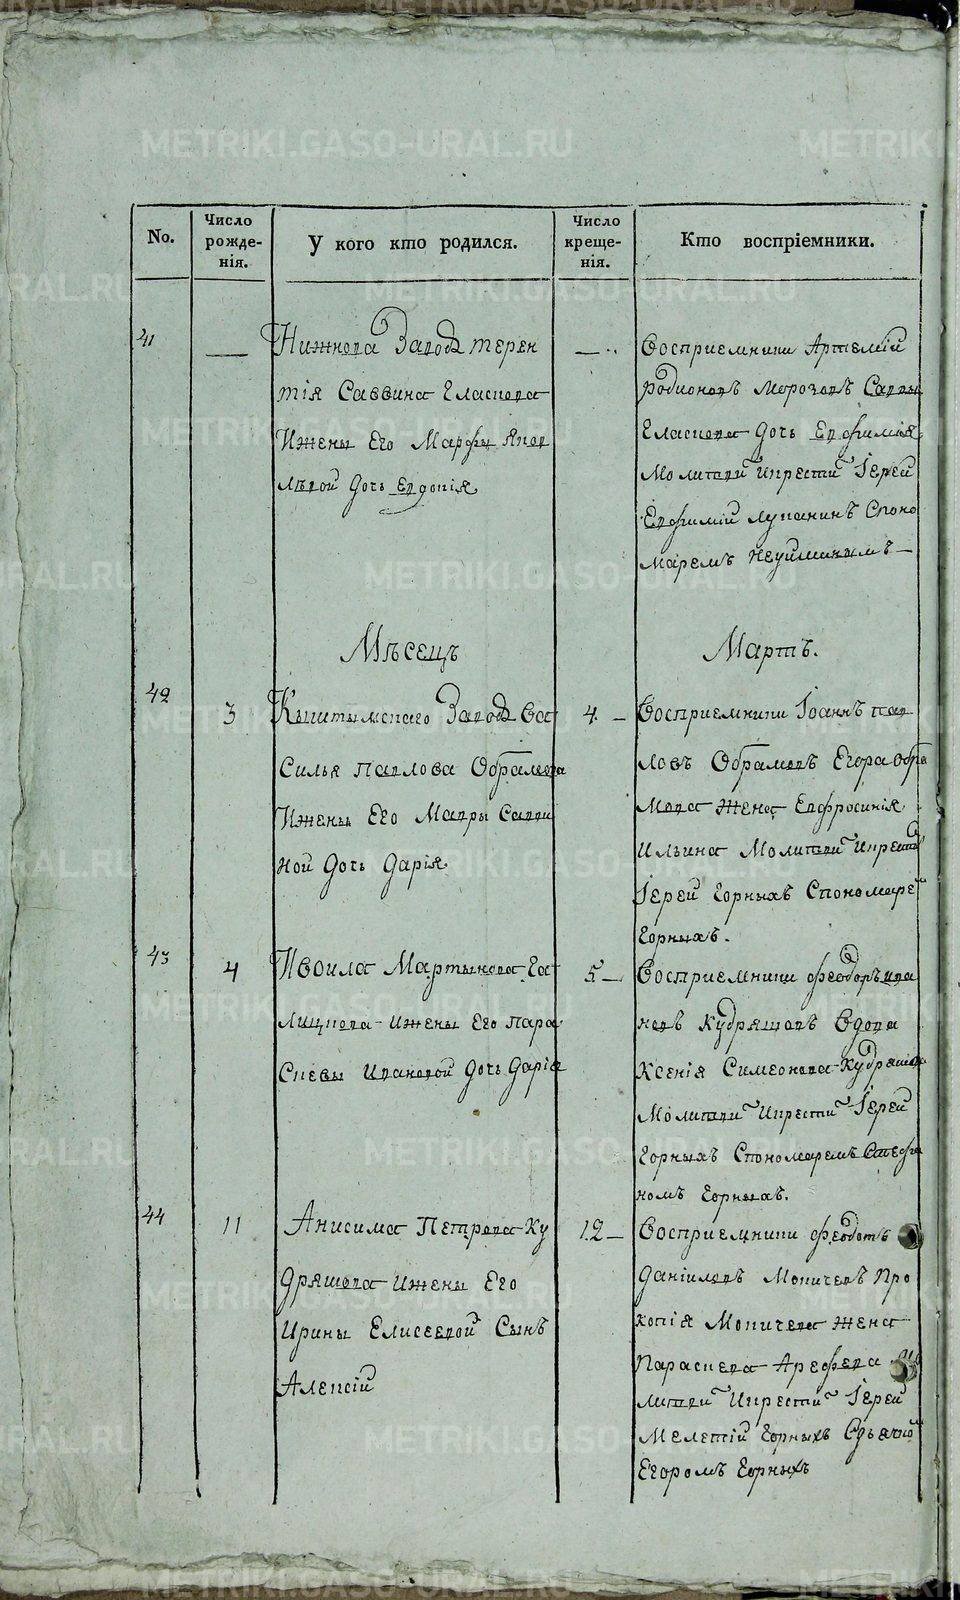 No.
Число рожде-нія.
У кого кто родился.
Число креще-нія.
Кто воспріемники.
41
Нижнева Завода терен
тія Саввина Гласкова
Ижены Его Марфы Яков
лѣвой дочь Евдокія
Восприемники Артемій
родионовъ Марочовъ Саввы
Гласкова дочь Евфимія
Молитвй икрести Іерей
Евфимій лупанинъ Споно
маремъ Неуйминымъ
Мѣсецъ
Мартъ.
42
3
Кыштымскаго Завода Ва
Силья Павлова Обрамова
Ижены Его Мавры Савви
ной дочь дарія
4
Восприемники Іоаннъ пав
ловъ Обрамовъ Егора Обра
мова жена Евфросинія
Ильина Молитвй икрести
Іерей Горныхъ Спономаре
Горныхъ.
43
4
Изоила Мартынова Га
лицкова Ижены Его пара
Скевы Ивановой дочь дарія
5
Восприемники феодоръ ива
новъ Кудряшовъ Вдова
Ксенія Симеонова Кудряшова
Молитвй Икрести Іерей
Горныхъ Спономаремъ Стефа
номъ Горныхъ.
44
11
Анисима Петрова Ку
дряшова Ижены Его
Ирины Елисеевой Сынъ
Алексій
12
Восприемники феодотъ
даніиловъ Мокичевъ Про
копія Мокичева жена
Параскева Арефева Мо
литвй Икрести Іерей
Мелетій Горныхъ Сдьячко
Егоромъ Горныхъ
METRIKI.GASO-URAL.RU